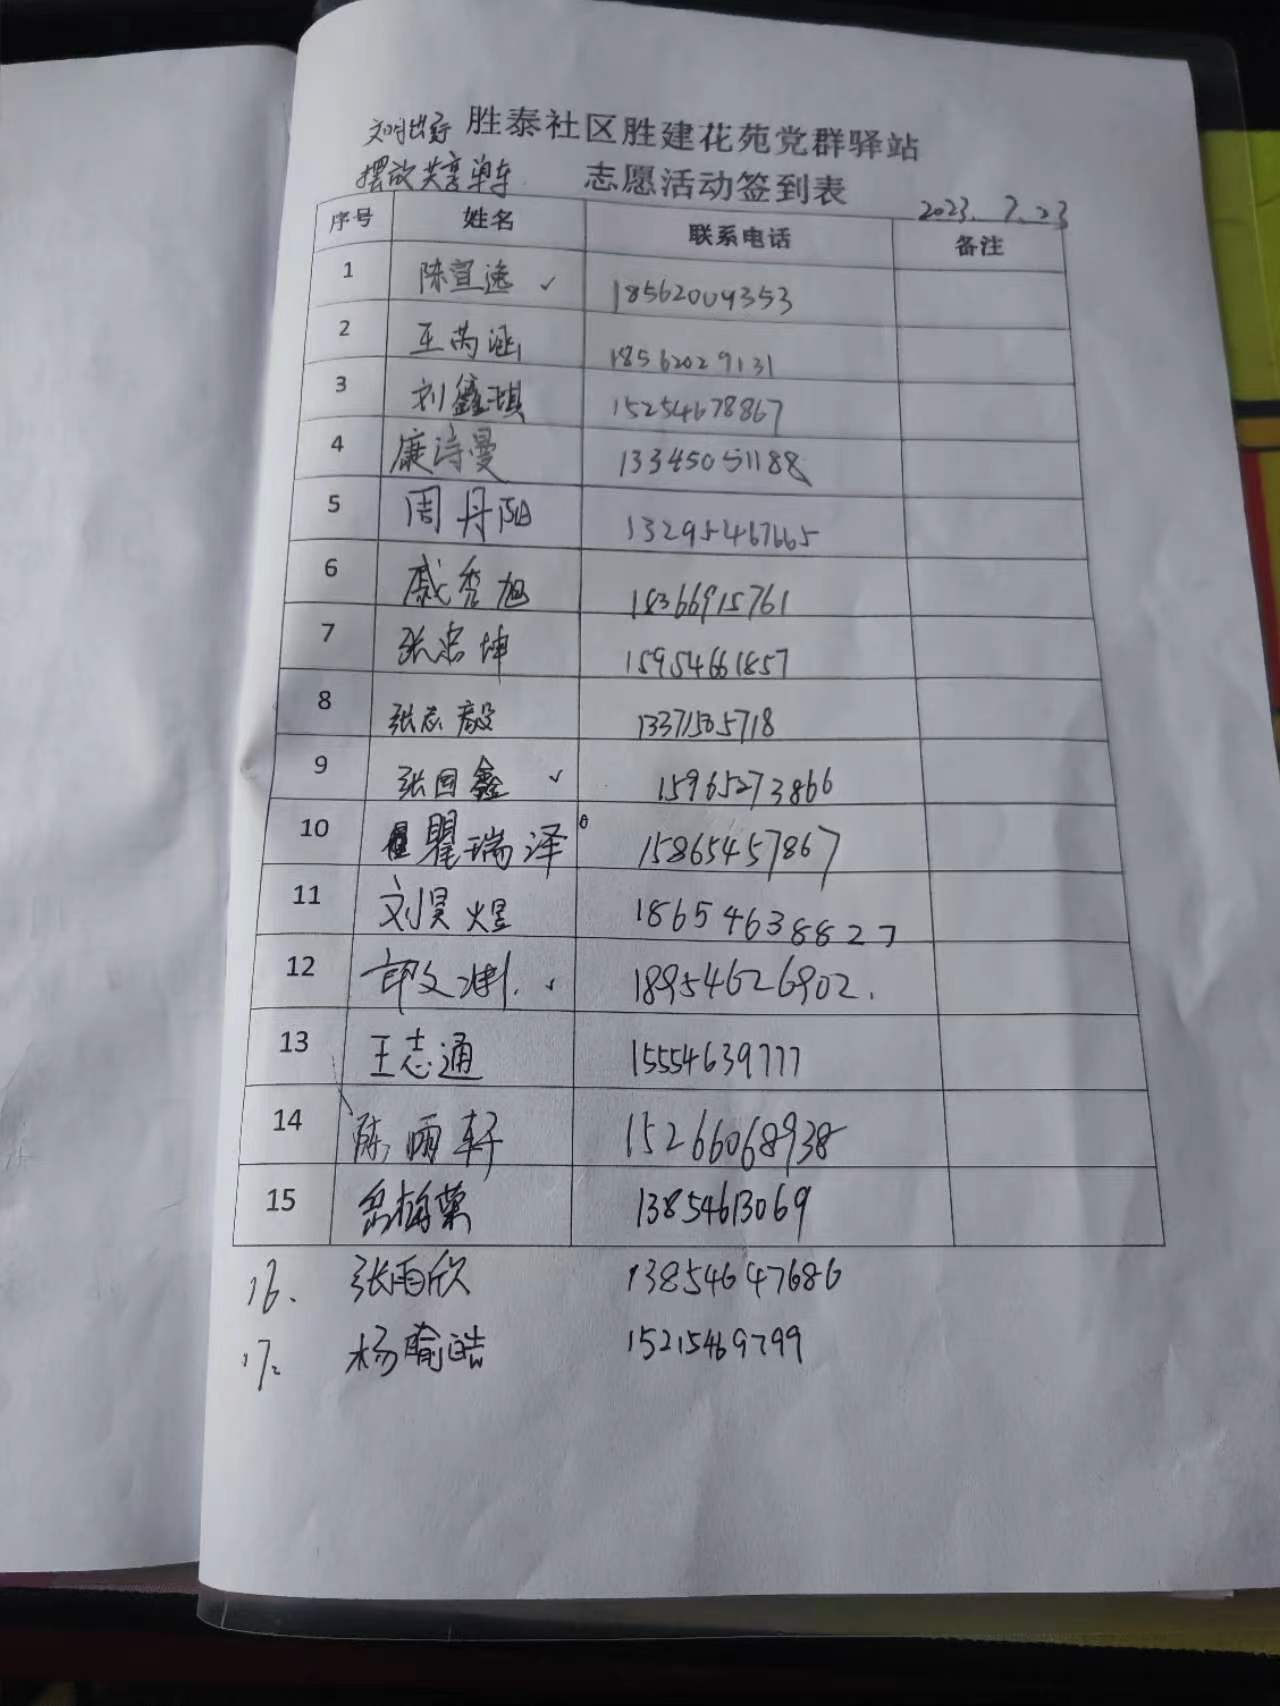 文明出行 胜泰社区胜建花苑党群驿站
摆放共享单车 志愿活动签到表 2023.7.23
序号 姓名 联系电话 备注
1 陈宣逸 ✓ 18562009353
2 王芮涵 18562029131
3 刘鑫琪 15254678867
4 康诗曼 13345051188
5 周丹阳 13295467665
6 戚秀旭 18366915761
7 张忠坤 15954661857
8 张志毅 13371505718
9 张国鑫 ✓ 15965273866
10 瞿瑞泽 15865457867
11 刘昊煜 18654638827
12 文 ✓ 18954626902.
13 王志通 15554639777
14 陈雨轩 15266068938
15 岳梅荣 13854613069
16. 张雨欣 13854647686
17. 杨瑜皓 15215469799